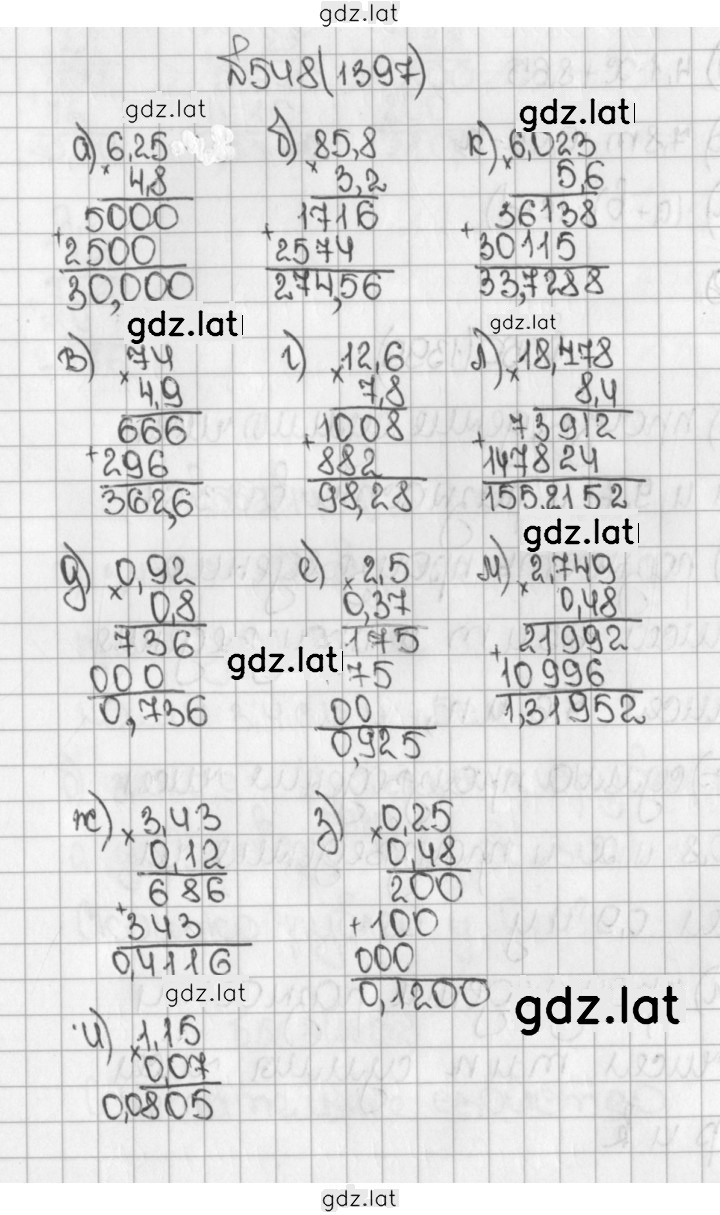 gdz.lat
№548(1397)
gdz.lat
gdz.lat
а) 6,25
× 4,8
5000
+ 2500
30,000
б) 85,8
× 3,2
1716
+ 2574
274,56
к) 6,023
× 5,6
36138
+ 30115
33,7288
gdz.lat
gdz.lat
в) 74
× 4,9
666
+ 296
362,6
г) 12,6
× 7,8
1008
+ 882
98,28
л) 18,478
× 8,4
73912
+ 147824
155,2152
gdz.lat
д) 0,92
× 0,8
736
000
0,736
gdz.lat
е) 2,5
× 0,37
175
75
00
0,925
м) 2,749
× 0,48
21992
+ 10996
1,31952
ж) 3,43
× 0,12
686
+ 343
0,4116
з) 0,25
× 0,48
200
+ 100
000
0,1200
gdz.lat
gdz.lat
и) 1,15
× 0,07
0,0805
gdz.lat